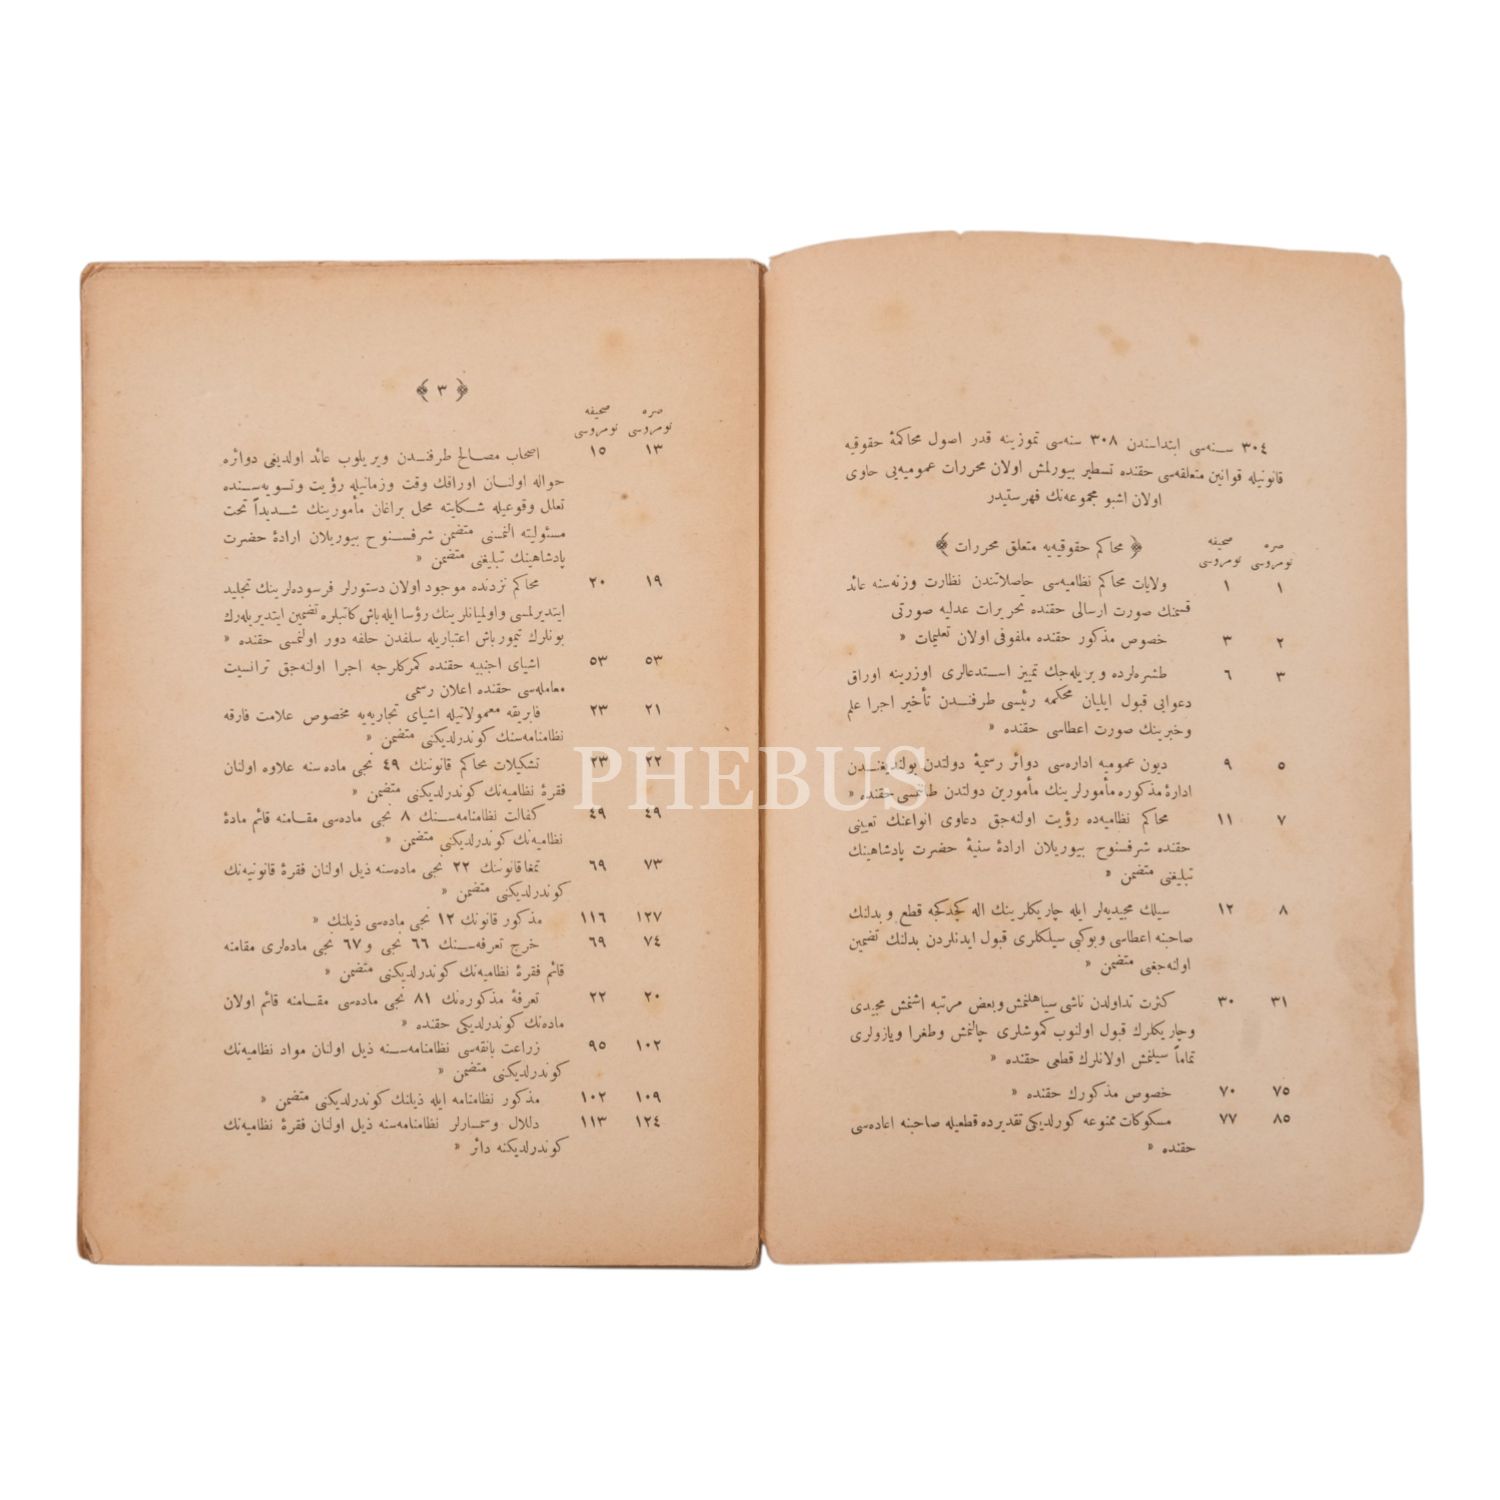 ٣٠٤ سنه‌سی ابتداسندن ٣٠٨ سنه‌سی تموزینه قدر اصول محاکمهٔ حقوقیه
قانونیله قوانین متعلقه‌سی حقنده تسطیر بیورلمش اولان محررات عمومیه‌یی حاوی
اولان اشبو مجموعه‌نك فهرستیدر
صره نومروسی صحیفه نومروسی ﴿ محاکم حقوقیه‌یه متعلق محررات ﴾
١ ١ ولایات محاکم نظامیه‌سی حاصلاتندن نظارت وزنه‌سنه عائد
قسمنك صورت ارسالی حقنده تحریرات عدلیه صورتی
٢ ٣ خصوص مذکور حقنده ملفوفی اولان تعلیمات «
٣ ٦ طشره‌لرده ویریله‌جك تمییز استدعالری اوزرینه اوراق
دعوایی قبول ایلیان محکمه رئیسی طرفندن تأخیر اجرا علم
وخبرینك صورت اعطاسی حقنده «
٥ ٩ دیون عمومیه اداره‌سی دوائر رسمیهٔ دولتدن بولندیغندن
ادارهٔ مذکوره مأمورلرینك مأمورین دولتدن طانمسی حقنده «
٧ ١١ محاکم نظامیه‌ده رؤیت اوله‌جق دعاوی انواعنك تعیینی
حقنده شرفسنوح بیوریلان ارادهٔ سنیهٔ حضرت پادشاهینك
تبلیغی متضمن «
٨ ١٢ سیلك مجیدیه‌لر ایله چاریکلرینك اله کچدکجه قطع و بدلنك
صاحبنه اعطاسی وبوکبی سیلکلری قبول ایدنلردن بدلنك تضمین
اوله‌جغی متضمن «
٣١ ٣٠ کثرت تداولدن ناشی سیاهلنمش وبعض مرتبه اشنمش مجیدی
وچاریکلرك قبول اولنوب کموشلری چالنمش وطغرا ویازولری
تماماً سیلنمش اولانلرك قطعی حقنده «
٧٥ ٧٠ خصوص مذکورك حقنده «
٨٥ ٧٧ مسکوکات ممنوعه کورلدیکی تقدیرده قطعیله صاحبنه اعاده‌سی
حقنده «
﴿ ٣ ﴾
صره نومروسی صحیفه نومروسی
١٣ ١٥ اصحاب مصالح طرفندن ویریلوب عائد اولدیغی دوائره
حواله اولنان اوراقك وقت وزمانیله رؤیت وتسویه‌سنده
تعلل وقوعیله شکایته محل براغان مأمورینك شدیداً تحت
مسئولیته النمسنی متضمن شرفسنوح بیوریلان ارادهٔ حضرت
پادشاهینك تبلیغی متضمن «
١٩ ٢٠ محاکم نزدنده موجود اولان دستورلر فرسوده‌لرینك تجلید
ایتدیرلمسی واولمیانلرینك رؤسا ایله‌باش کاتبلره تضمین ایتدیریله‌رك
بونلرك تیمورباش اعتباریله سلفدن حلفه دور اولنمسی حقنده «
٥٣ ٥٣ اشیای اجنبیه حقنده کمرکلرجه اجرا اوله‌جق ترانسیت
معامله‌سی حقنده اعلان رسمی
٢١ ٢٣ فابریقه معمولاتیله اشیای تجاریه‌یه مخصوص علامت فارقه
نظامنامه‌سنك کوندرلدیکنی متضمن «
٢٢ ٢٣ تشکیلات محاکم قانوننك ٤٩ نجی ماده‌سنه علاوه اولنان
فقرهٔ نظامیه‌نك کوندرلدیکنی متضمن «
٤٩ ٤٩ کفالت نظامنامه‌سنك ٨ نجی ماده‌سی مقامنه قائم مادهٔ
نظامیه‌نك کوندرلدیکنی متضمن «
٧٣ ٦٩ تمغا قانوننك ٢٢ نجی ماده‌سنه ذیل اولنان فقرهٔ قانونیه‌نك
کوندرلدیکنی متضمن «
١٢٧ ١١٦ مذکور قانونك ١٢ نجی ماده‌سی ذیلنك «
٧٤ ٦٩ خرج تعرفه‌سنك ٦٦ نجی و ٦٧ نجی ماده‌لری مقامنه
قائم فقرهٔ نظامیه‌نك کوندرلدیکنی متضمن «
٢٠ ٢٢ تعرفهٔ مذکوره‌نك ٨١ نجی ماده‌سی مقامنه قائم اولان
ماده‌نك کوندرلدیکی حقنده «
١٠٢ ٩٥ زراعت بانقه‌سی نظامنامه‌سنه ذیل اولنان مواد نظامیه‌نك
کوندرلدیکنی متضمن «
١٠٩ ١٠٢ مذکور نظامنامه ایله ذیلنك کوندرلدیکنی متضمن «
١٢٤ ١١٣ دلال وسمسارلر نظامنامه‌سنه ذیل اولنان فقرهٔ نظامیه‌نك
کوندرلدیکنه دائر «
PHEBUS